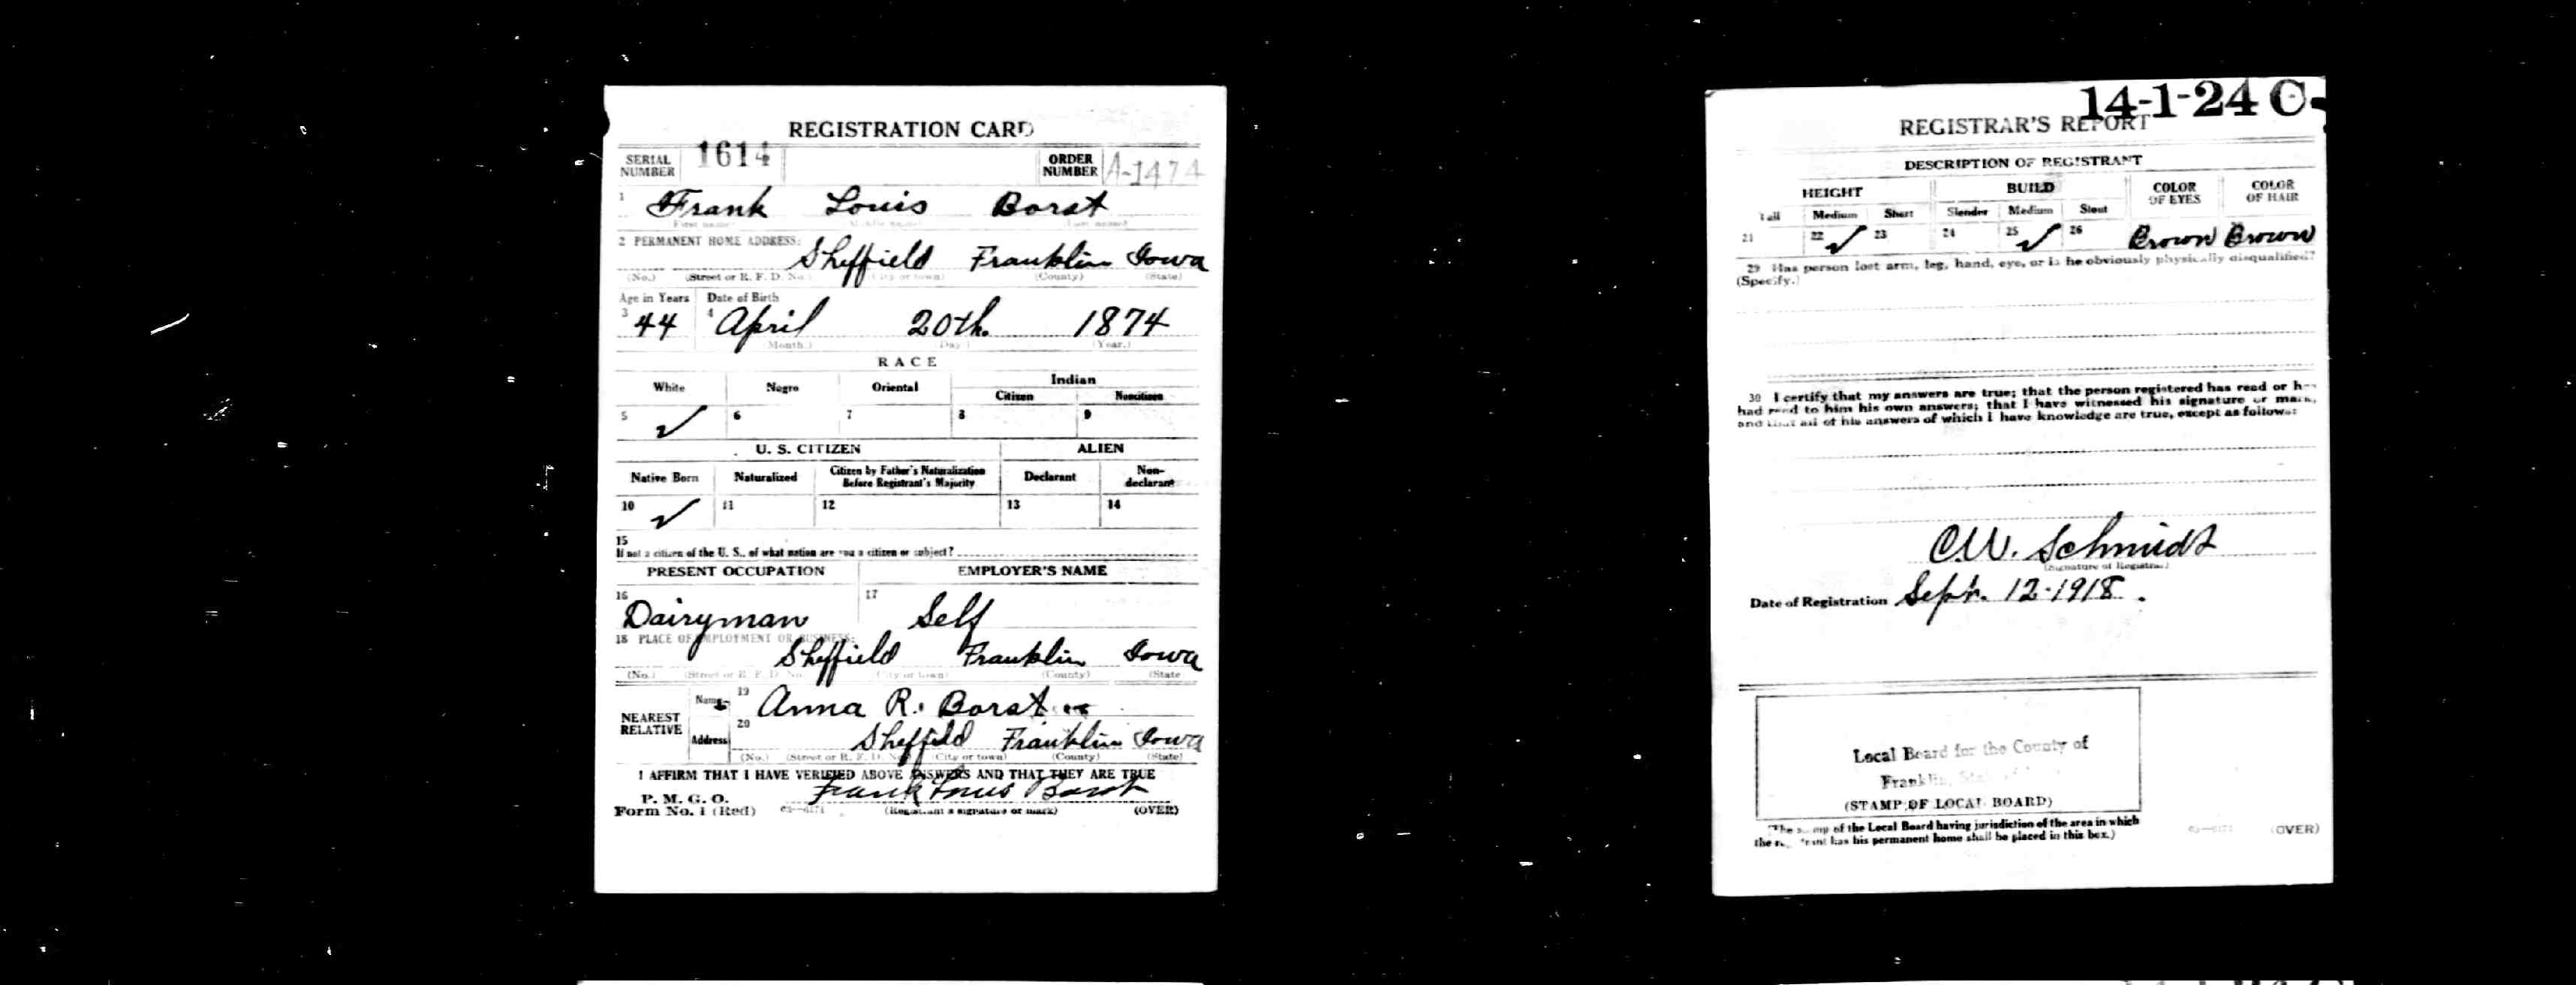 REGISTRATION CARD
SERIAL NUMBER 1614 ORDER NUMBER A-1474
1 Frank Louis Borst
2 PERMANENT HOME ADDRESS:
Sheffield Franklin Iowa
(No.) (Street or R. F. D. No.) (City or town) (County) (State)
Age in Years Date of Birth
3 44 4 April 20th. 1874
(Month.) (Day.) (Year.)
RACE
White Negro Oriental Indian
Citizen Noncitizen
5 ✓ 6 7 8 9
U. S. CITIZEN ALIEN
Native Born Naturalized Citizen by Father's Naturalization Before Registrant's Majority Declarant Non-declarant
10 ✓ 11 12 13 14
15
If not a citizen of the U. S., of what nation are you a citizen or subject?
PRESENT OCCUPATION EMPLOYER'S NAME
16 Dairyman 17 Self
18 PLACE OF EMPLOYMENT OR BUSINESS:
Sheffield Franklin Iowa
(No.) (Street or R. F. D. No.) (City or town) (County) (State
NEAREST RELATIVE Name 19 Anna R. Borst
Address 20 Sheffild Franklin Iowa
(No.) (Street or R. F. D. No.) (City or town) (County) (State)
I AFFIRM THAT I HAVE VERIFIED ABOVE ANSWERS AND THAT THEY ARE TRUE
P. M. G. O. Frank Louis Borst
Form No. 1 (Red) (Registrant's signature or mark) (OVER)
14-1-24 C
REGISTRAR'S REPORT
DESCRIPTION OF REGISTRANT
HEIGHT BUILD COLOR OF EYES COLOR OF HAIR
Tall Medium Short Slender Medium Stout
21 22 ✓ 23 24 25 ✓ 26 Brown Brown
29 Has person lost arm, leg, hand, eye, or is he obviously physically disqualified?
(Specify.)
30 I certify that my answers are true; that the person registered has read or has
had read to him his own answers; that I have witnessed his signature or mark,
and that all of his answers of which I have knowledge are true, except as follows:
C.W. Schmidt
(Signature of Registrar.)
Date of Registration Sept. 12-1918.
Local Board for the County of
Franklin, State of
(STAMP OF LOCAL BOARD)
(The stamp of the Local Board having jurisdiction of the area in which
the registrant has his permanent home shall be placed in this box.)
(OVER)